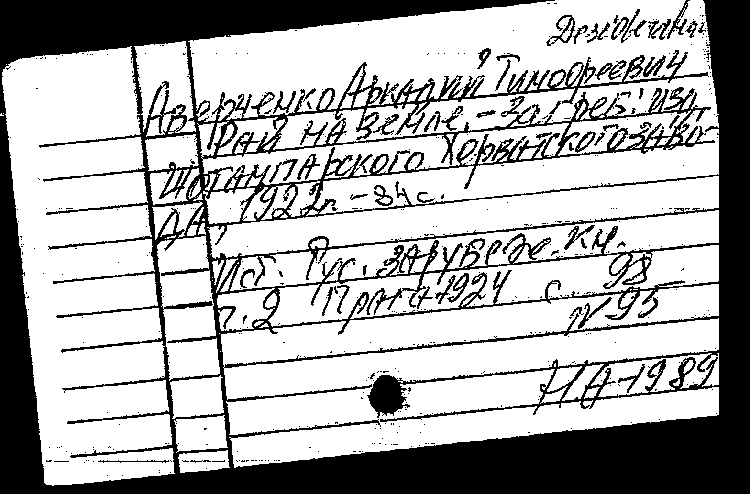 Дезидерата
Аверченко Аркадий Тимофеевич
Рай на земле. - Загреб: изд.
Штампарского Хорватского заво-
да, 1922г. - 84 с.
Ист. Рус. зарубеж. кн.
т. 2 Прага 1924 с. 98
№ 95
НА-1989